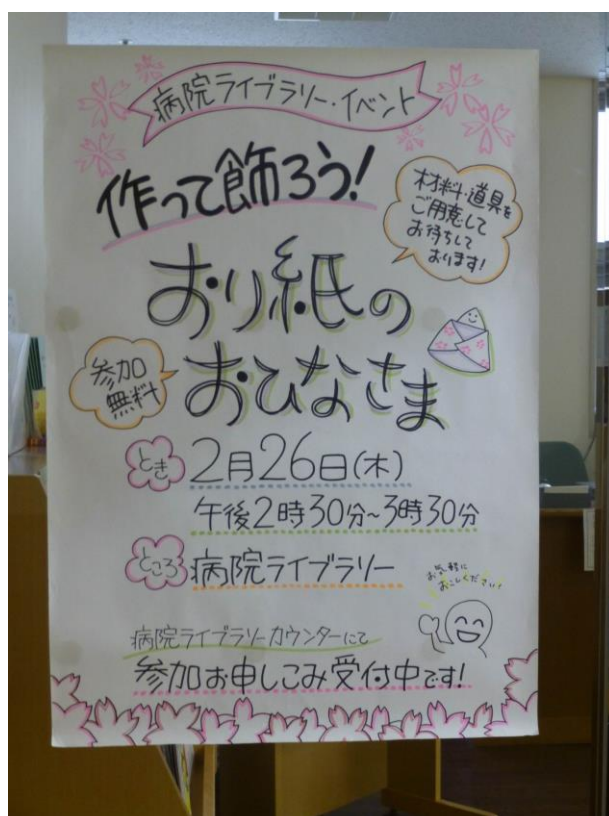 病院ライブラリー・イベント
作って飾ろう!
材料・道具を
ご用意して
お待ちして
おります!
おり紙の
おひなさま
参加
無料
とき 2月26日(木)
午後2時30分~3時30分
ところ 病院ライブラリー
お気軽に
おこしください!
病院ライブラリーカウンターにて
参加お申しこみ受付中です!